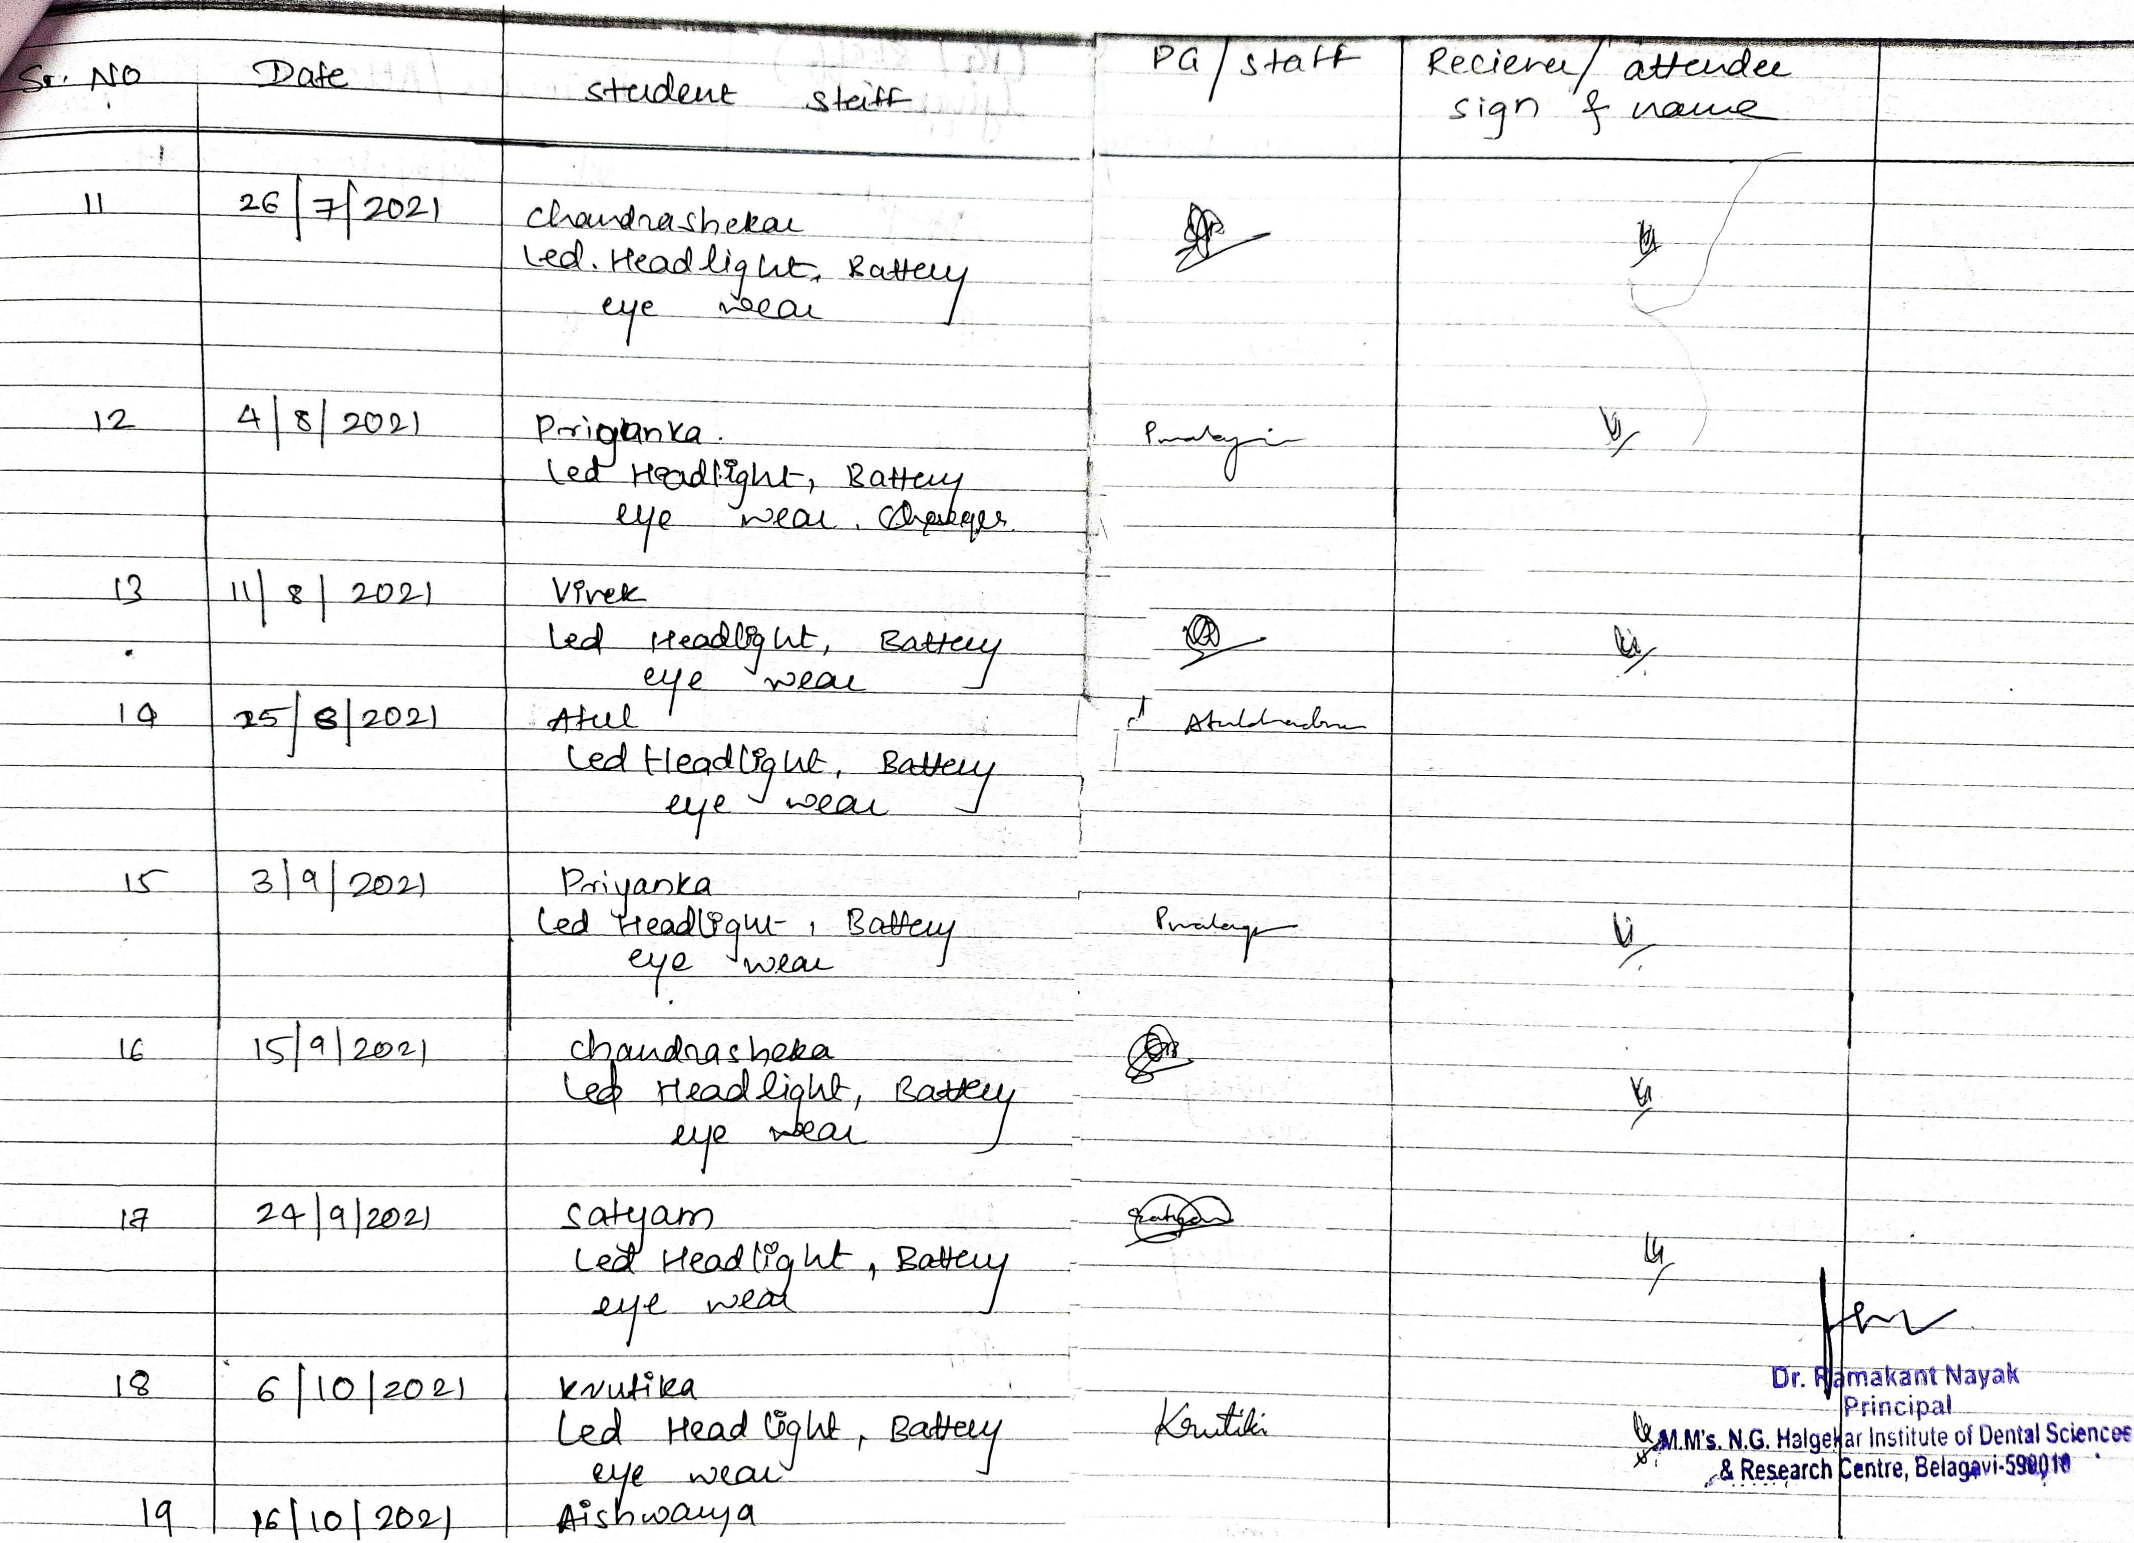 Sr. No Date student staff PG / staff Reciever/ attendee
sign & name
11 26/7/2021 Chandrashekar
Led. Headlight, Battery
eye wear
12 4/8/2021 Priyanka.
Led Headlight, Battery
eye wear.
13 11/8/2021 Vivek
Led Headlight, Battery
eye wear
14 25/8/2021 Atul
Led Headlight, Battery
eye wear
15 3/9/2021 Priyanka
Led Headlight, Battery
eye wear
16 15/9/2021 Chandrasheka
Led Headlight, Battery
eye wear
17 24/9/2021 Satyam Satyam
Led Headlight, Battery
eye wear
18 6/10/2021 Krutika
Led Headlight, Battery Krutiki
eye wear
19 16/10/2021 Aishwarya
Dr. Ramakant Nayak
Principal
M.M's. N.G. Halgekar Institute of Dental Sciences
& Research Centre, Belagavi-590010